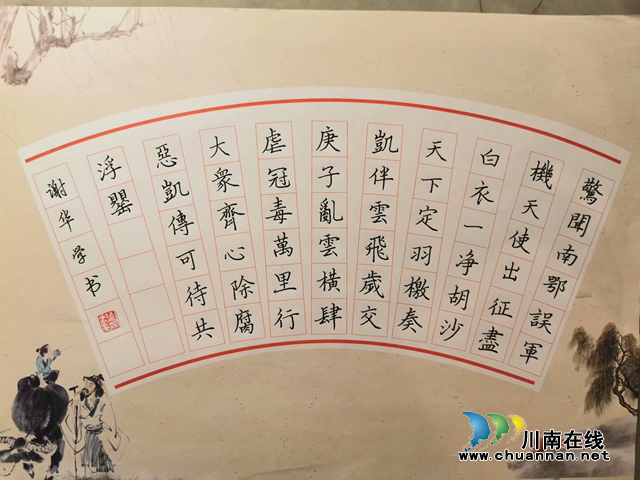 驚聞南鄂誤軍
機天使出征盡
白衣一净胡沙
天下定羽檄奏
凱伴雲飛歲交
庚子亂雲橫肆
虐冠毒萬里行
大衆齊心除腐
惡凱傳可待共
浮罌
谢华学书
川南在线
www.chuannan.net